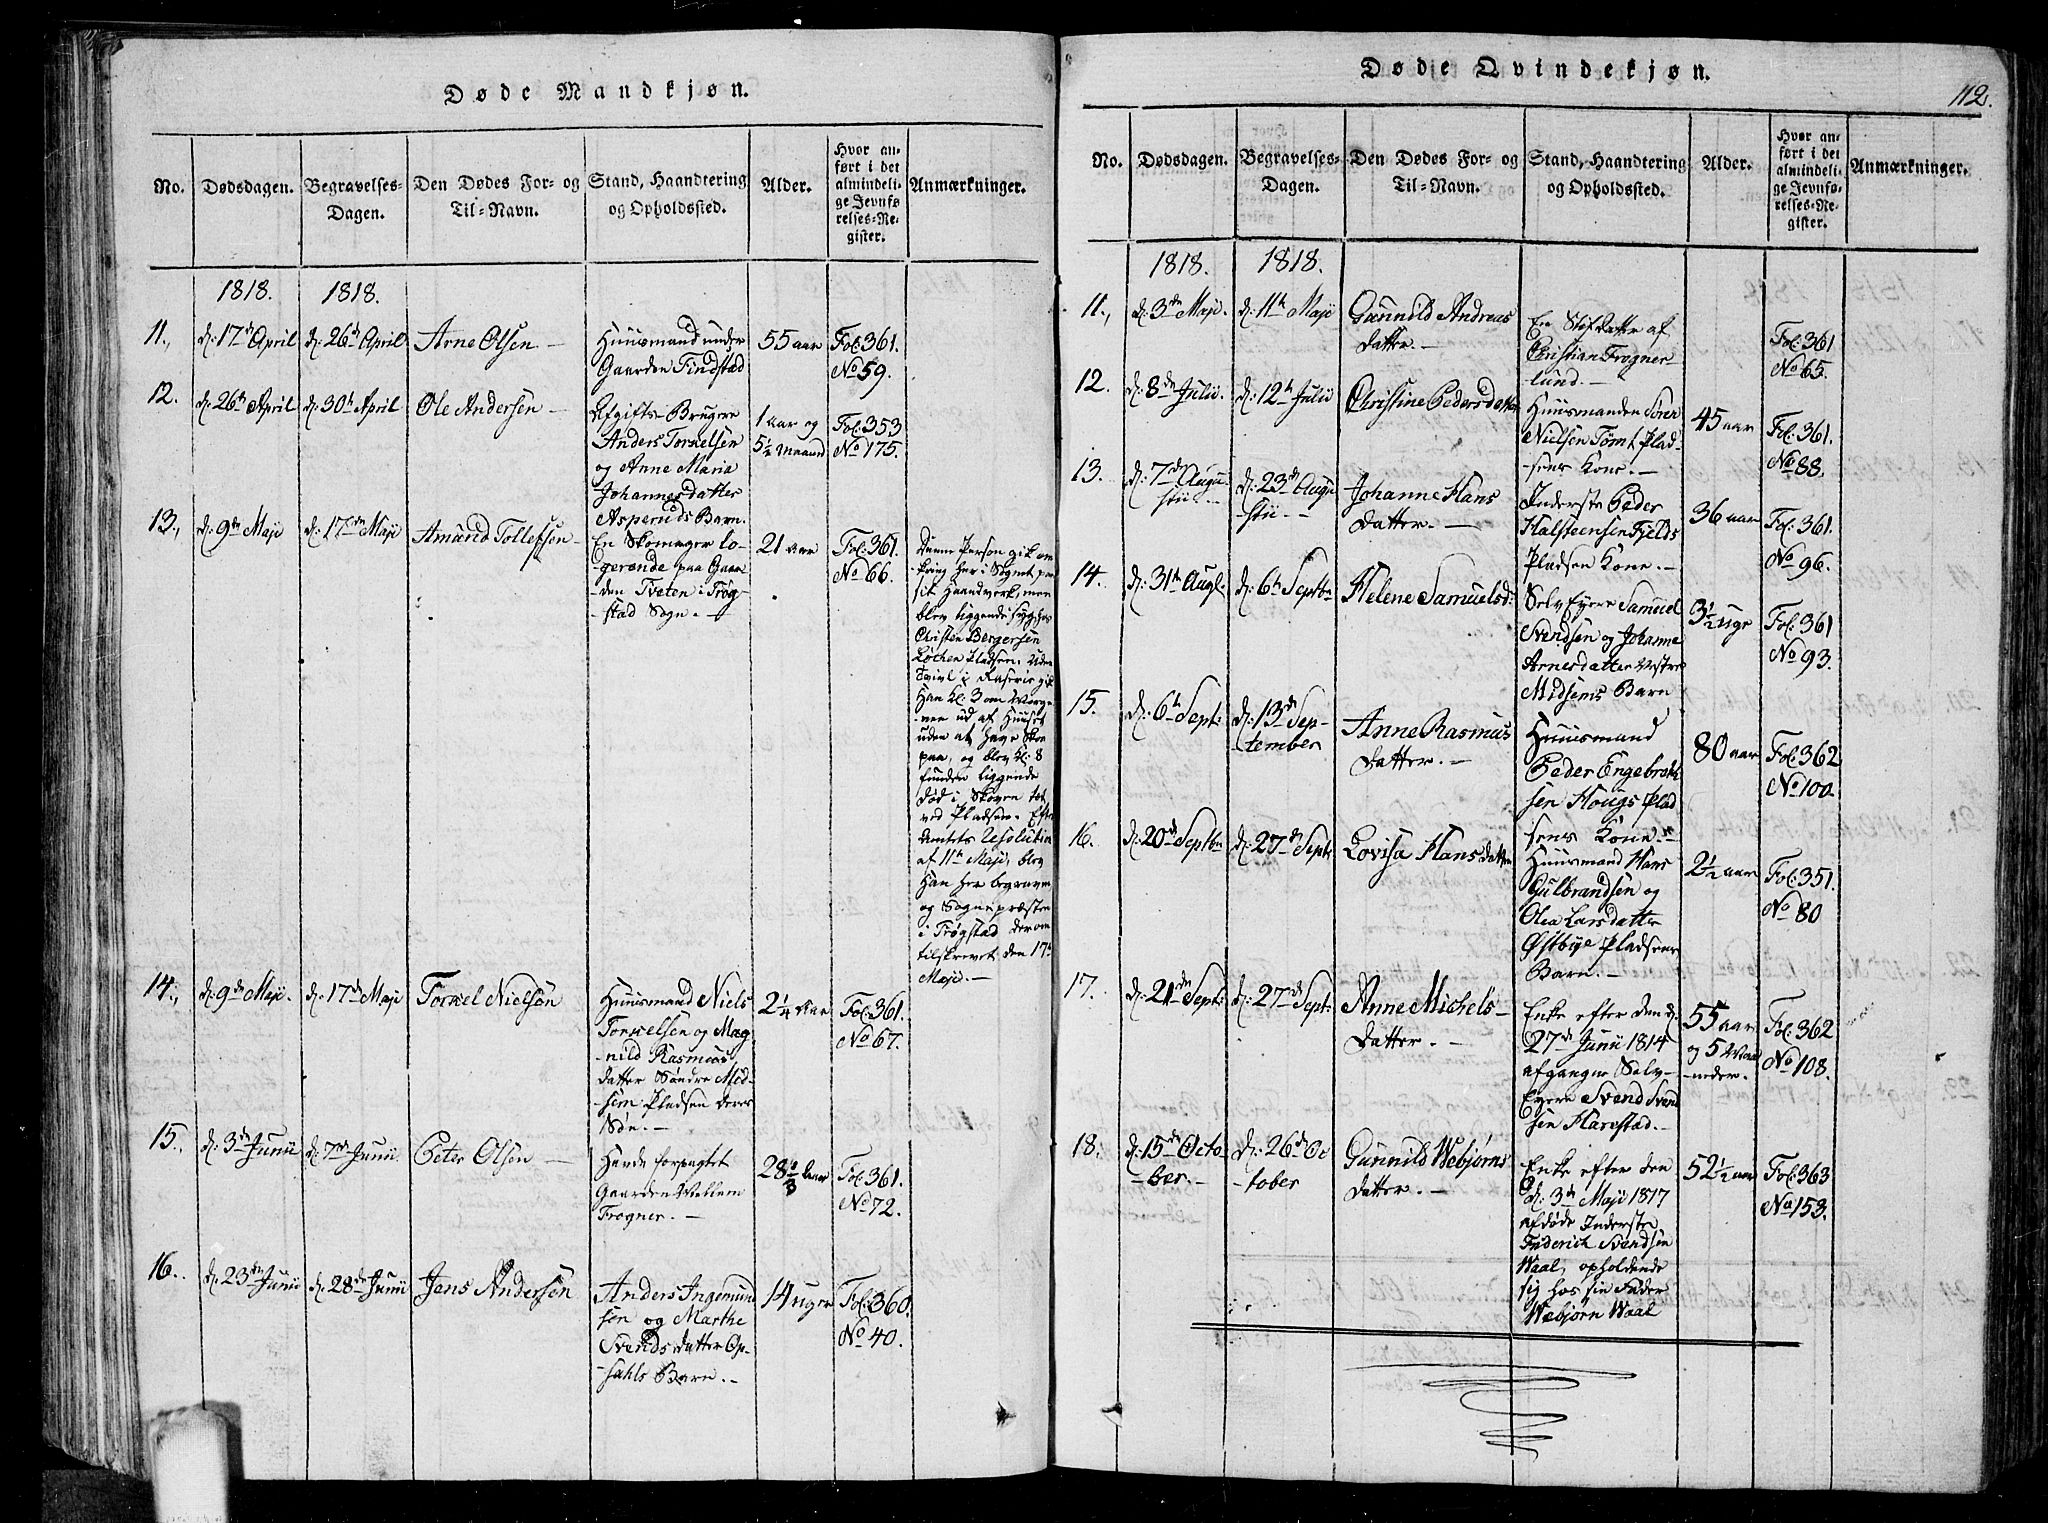 Døde Mandkjøn.
No.
Dødsdagen.
Begravelses-
Dagen.
Den Dødes For- og
Til-Navn.
Stand, Haandtering
og Opholdssted.
Alder.
Hvor an-
ført i det
almindeli-
ge Jevnfø
relses-Re-
gister.
Anmærkninger.
1818.
1818.
11.,
d: 17de April
d: 26de April
Arne Olsen —
Huusmand under
Gaarden Findstad
55 aar
Fol: 361.
No 59.
12.
d: 26th April
d: 30th April
Ole Andersen —
Afgifts-Bruger
Anders Torkelsen
og Anne Maria
Johannesdatter
Asperuds Barn.
1 aar og
5½ Maaned
Fol: 353
No 175.
13.,
d: 9de Maji
d: 17de Maji
Amund Tollefsen —
En Skomager lo-
gerende paa Gaar
den Tveten i Trøg-
stad Sogn. —
21 Aar
Fol: 361.
No 66.
Denne Person gik om
kring her i Sognet paa
sit Haandverk, men
blev liggende syg hos
Christen Bergersen
Løchen Pladsen. Uden
Tvivl i Raserie gik
Han Kl: 3 om Morge
nen ud af Huuset
uden at have Skoe
paa, og blev Kl: 8
funden liggende
død i Skoven tæt
ved Pladsen. Efter
Amtets Resolution
af 11th Maji, blev
Han her begraven
og Sognepræsten
i Trøgstad derom
tilskrevet den 17th
Maji. —
14.,
d: 9de Maji.
d: 17de Maji
Torkel Nielsen
Huusmand Niels
Torkelsen og Mag
nild Rasmus
datter Søndre Mid-
sem Pladsen deres
Søn. —
2¼ Aar
Fol: 361.
No 67.
15.
d: 3de Junii
d: 7de Junii.
Peter Olsen —
Havde forpagtet
Gaarden Mellem
Frogner. —
28⅔ Aar
Fol: 361.
No 72.
16.
d: 23de Junii
d: 28de Junii
Jens Andersen
Anders Ingemund
sen og Marthe
Svends datter Op-
sahls Barn. —
14 uger
Fol: 360.
No 40.
Døde Qvindekjøn.
112.
No.
Dødsdagen.
Begravelses-
Dagen.
Den Dødes For- og
Til-Navn.
Stand, Haandtering
og Opholdssted.
Alder.
Hvor an-
ført i det
almindeli-
ge Jevnfø-
relses-Re-
gister.
Anmærkninger.
1818.
1818.
11.,
d: 3de Maji.
d: 11th Maji
Gunnild Andreas
datter. —
En Stifdatter af
Christian Frogner
lund. —
Fol: 361
No 65.
12.
d: 8de Julii.
d: 12th Julii
Christine Pedersdatter
Huusmanden Søren
Nielsen Tømt Plad-
sens Kone. —
45 aar
Fol: 361.
No 88.
13.
d: 7de Augu-
stii —
d: 23de Augu
stii —
Johanne Hans
datter. —
Inderste Peder
Halsteensen Fjelds
Pladsen Kone. —
36 aar
Fol: 361.
No 96.
14.
d: 31th Augt:
d: 6th Septbr
Helene Samuelsd:
Selv Eyere Samuel
Svendsen og Johanne
Arnesdatter Vestre
Midsems Barn
3½ uge
Fol: 361
No 93.
15.
d: 6th Sept:
d: 13de Sep-
tember
Anne Rasmus
datter. —
Huusmand
Peder Engebreth
sen Hougs Plad
sens Kone. —
80 aar
Fol: 362
No 100
16.
d: 20de Septbr
d: 27de Sept:
Lovisa Hansdatter
Huusmand Hans
Gulbrandsen og
Olea Larsdatter
Østbye Pladsens
Barn. —
2½ aar
Fol: 351.
No 80
17.
d: 21de Sept:
d: 27de Sept:
Anne Michels-
datter. —
Enke efter den d.
27de Junii 1814
afgangne Selv-
Eyere Svend Svend
sen Harestad. —
55 aar
og 5 Maa
neder.
Fol: 362
No 108.
18.
d: 15de Octo-
ber. —
d: 26de Oc
tober
Gunnild Webjørns
datter. —
Enke efter den
d: 3de Maji 1817
afdøde Inderste
Friderich Svendsen
Waal, opholdende
sig hos sin Fader
Webjørn Waal
52½ aar
Fol: 363
No 153.